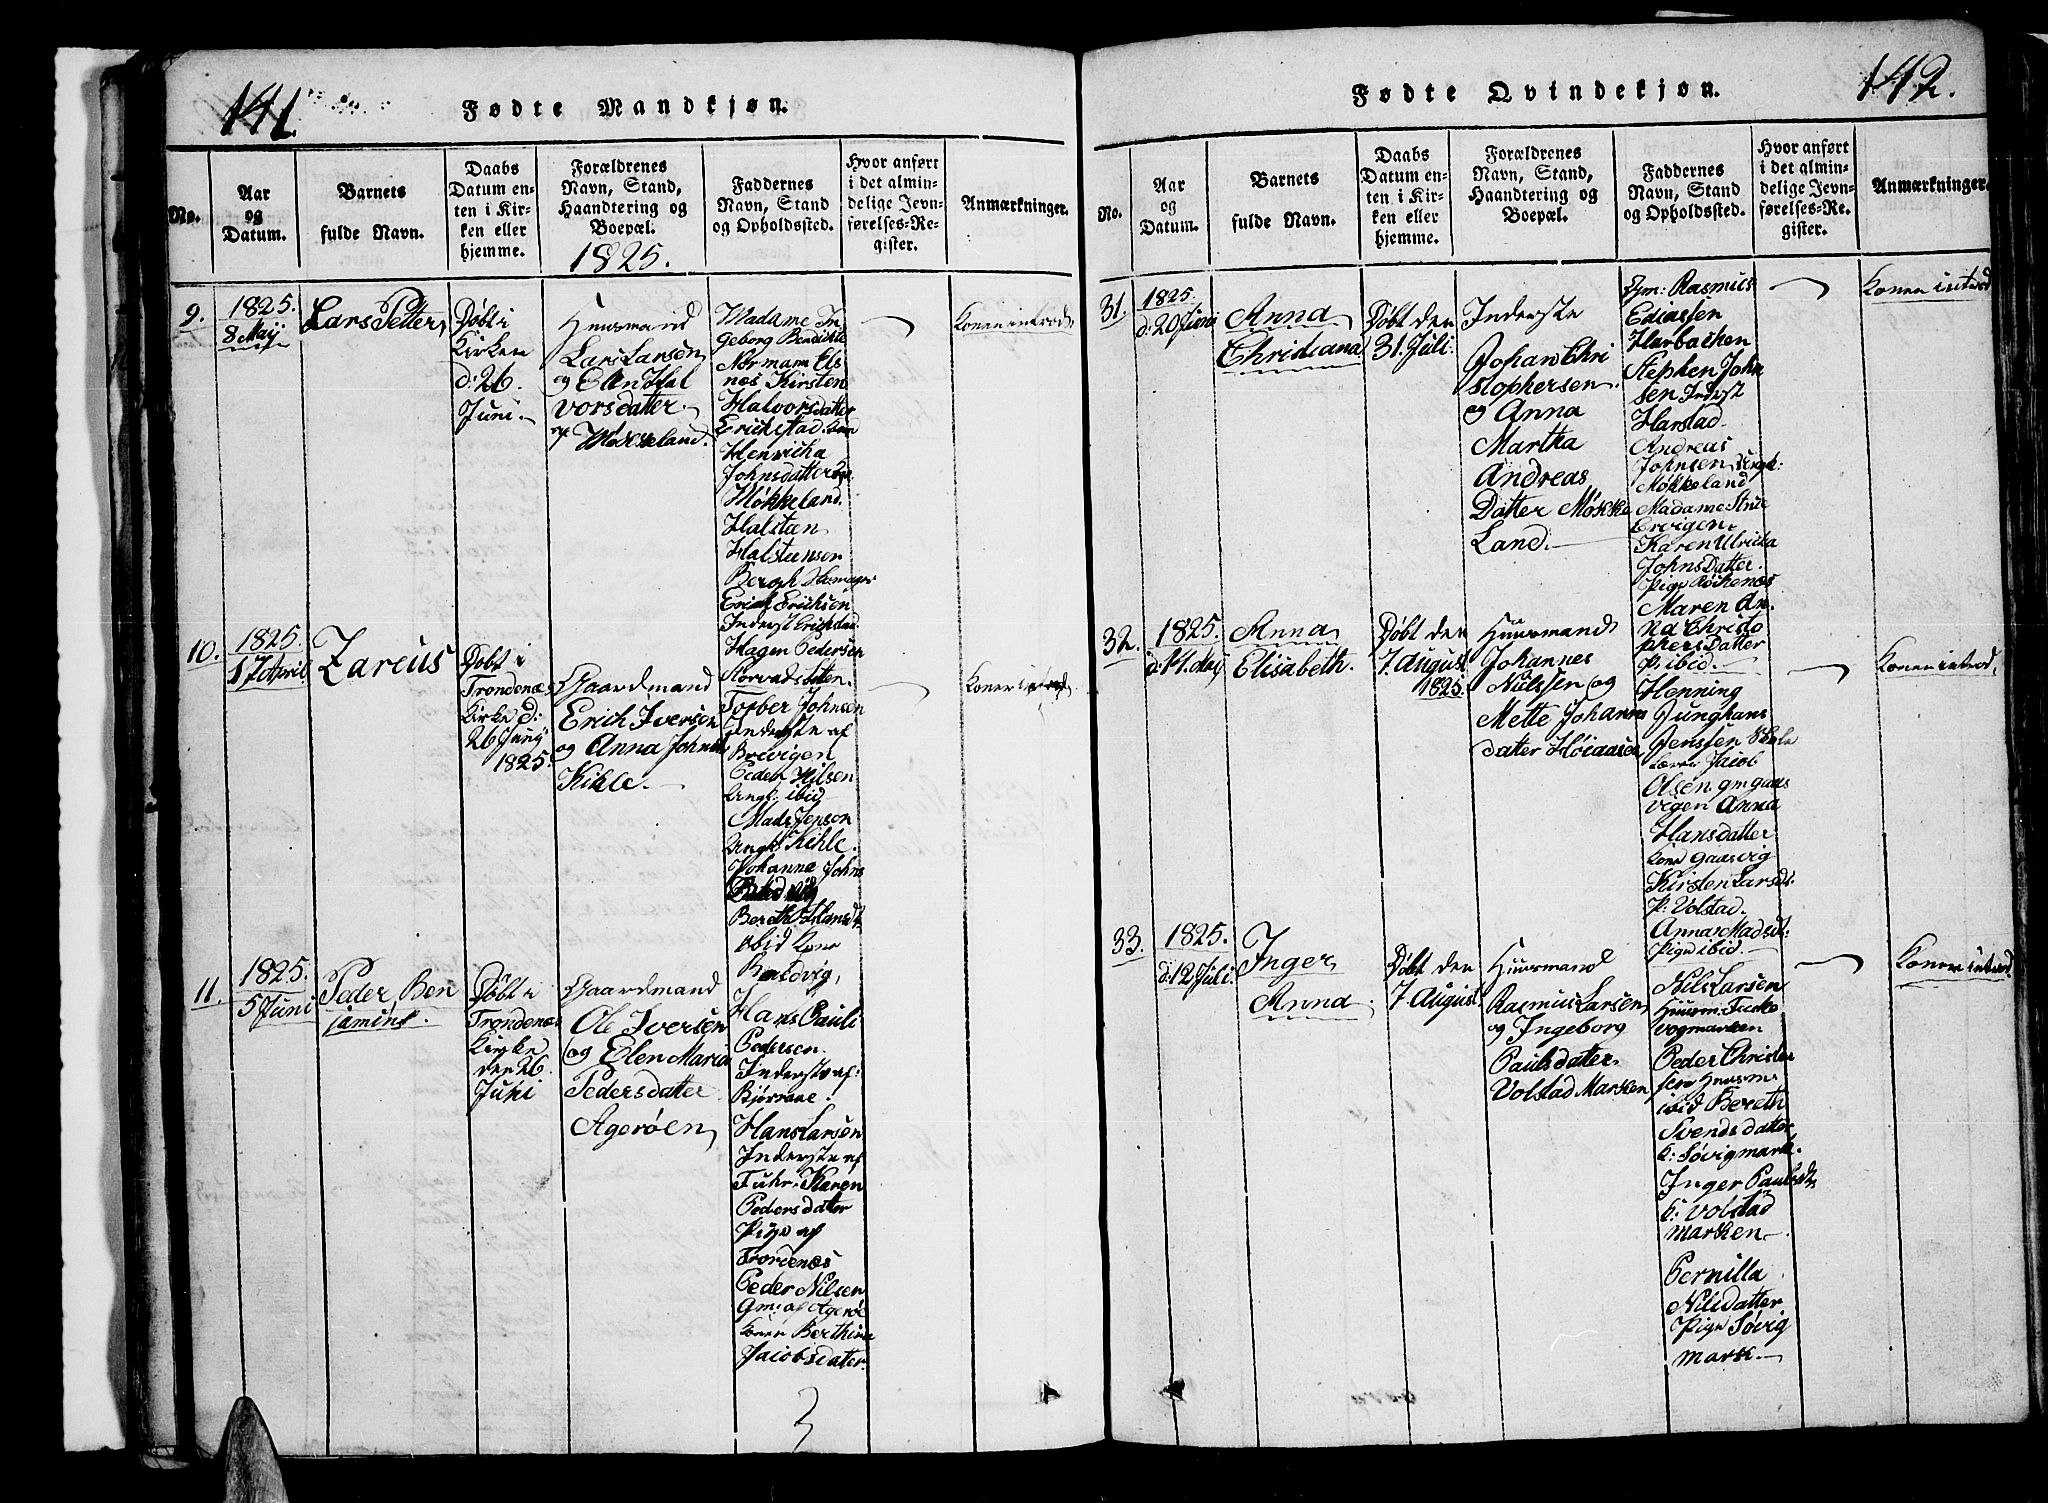 141
Fødte Mandkjøn.
No.
Aar
og
Datum.
Barnets
fulde Navn.
Daabs
Datum en-
ten i Kir-
ken eller
hjemme.
Forældrenes
Navn, Stand,
Haandtering og
Boepæl.
1825.
Faddernes
Navn, Stand
og Opholdssted.
Hvor anført
i det almin-
delige Jevn-
førelses-Re-
gister.
Anmærkninger.
9.
1825.
8 Maij
Lars Petter
Døbt i
Kirken
d: 26.
Juni.
Huusmand
Lars Larsen
og Elen Hal
vorsdatter
af Møckeland.
Madame In
geborg Benedicte
Normann Els
nes Kirsten
Halvorsdatter
Erichstad
Henricha
Johnsdatter
Møkkeland.
Halsten
Halsteensen
Bergh
Erich Erichsen
Inderst Erichstad
Hagen Pedersen
Storvadsletten.
Konen introd.
10.
1825.
17 April
Zareus
Døbt i
Trondenæs
Kirke d:
26 Junij
1825.
Gaardmand
Erich Iversen
og Anna Johnsd
Kihle.
Torber Johnsen
Inderste af
Bredvigen
Peder Nilsen
Ungk: ibid
Mads Jenson
Ungk: Kihle.
Johanna Johns
Bredvig
Bereth Hansdt
ibid Kone
Bredvig,
Konen introd.
11.
1825.
5 Juni
Peder Ben
jamin.
Døbt i
Trondenæs
Kirke
den 26
Juni
Gaardmand
Ole Iversen
og Elen Maria
Pedersdatter
Agerøen
Hans Pauli
Pedersen
Inderste af:
Bjørnaae.
Hans Larsen
Inderste af
Fuhr. Karen
Pedersdatter
Pige af
Trondenæs
Peder Nilsen
Gm: af Agerøe
Konen Berthine
Jacobsdatter.
142.
Fødte Qvindekjøn.
No.
Aar
og
Datum.
Barnets
fulde Navn.
Daabs
Datum en-
ten i Kir-
ken eller
hjemme.
Forældrenes
Navn, Stand,
Haandtering og
Boepæl.
Faddernes
Navn, Stand
og Opholdssted.
Hvor anført
i det almin-
delige Jevn-
førelses-Re-
gister.
Anmærkninger.
31.
1825.
d: 20 Juni
Anna
Christiana
Døbt den
31. Juli.
Inderste
Johan Chri
stophersen
og Anna
Martha
Andreas
Datter Møkke
Land.
Rasmus
Edinssen
Harbachen
Stephen John
sen Inderst
Harstad
Andreas
Johnsen Ungk:
Møkkeland
Madame Strue
Ervigen
Karen Ulricha
JohnsDatter.
Pige Røchenæs
Maren An
na Christo
phers Datter
P: ibid.
Konen introd
32.
1825.
d: 14. May
Anna
Elisabeth.
Døbt den
7. August
1825.
Huusmand
Johannes
Nielssen og
Mette Johannes
datter Høiaasen
Henning
Junghans
Jenssen Skole
Lærer Jacob
Olsen gm gaas
vigen Anna
Hansdatter
Kone gaasvig
Kirsten Larsdt:
P: Volstad.
Anna Madsdt:
Pige ibid.
Konen introd.
33.
1825.
d: 12 Juli
Inger
Anna
Døbt den
7 August
Huusmand
Rasmus Larsen
og Ingeborg
Paulsdatter
Volstad Marken
Nils Larsen
Huusm: Fuske
vogmarken
Peder Christen
sen Huusm
ibid Bereth
Svendsdatter
k: Søvigmark.
Inger Paulsdtr
k: Volstad
marken
Pernilla
Nilsdatter
Pige Søvig
mark.
Konen introd